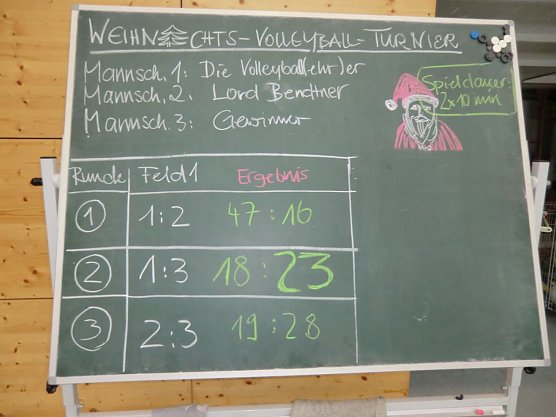 WEIHNACHTS-VOLLEYBALL-TURNIER
Mannsch. 1: Die Volleyball(ehr)er
Mannsch. 2. Lord Bendtner
Mannsch. 3: Gewinner
Spieldauer:
2x10 min
Runde Feld 1 Ergebnis
1 1:2 47:16
2 1:3 18:23
3 2:3 19:28